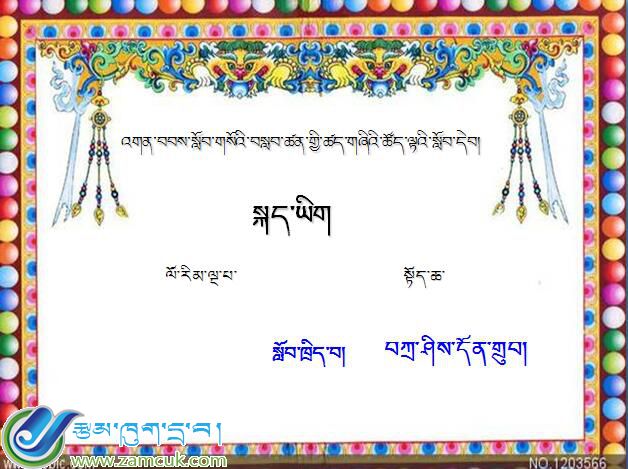 འགན་བབས་སློབ་གསོའི་བསླབ་ཚན་གྱི་ཚད་གཞིའི་ཚོད་ལྟའི་སློབ་དེབ།
སྐད་ཡིག
ལོ་རིམ་ལྔ་པ་ སྟོད་ཆ་
སློབ་ཁྲིད་བ། བཀྲ་ཤིས་དོན་གྲུབ།
རྩམ་ཁུག་དྲ་བ།
www.zamcuk.com
NO.1203566